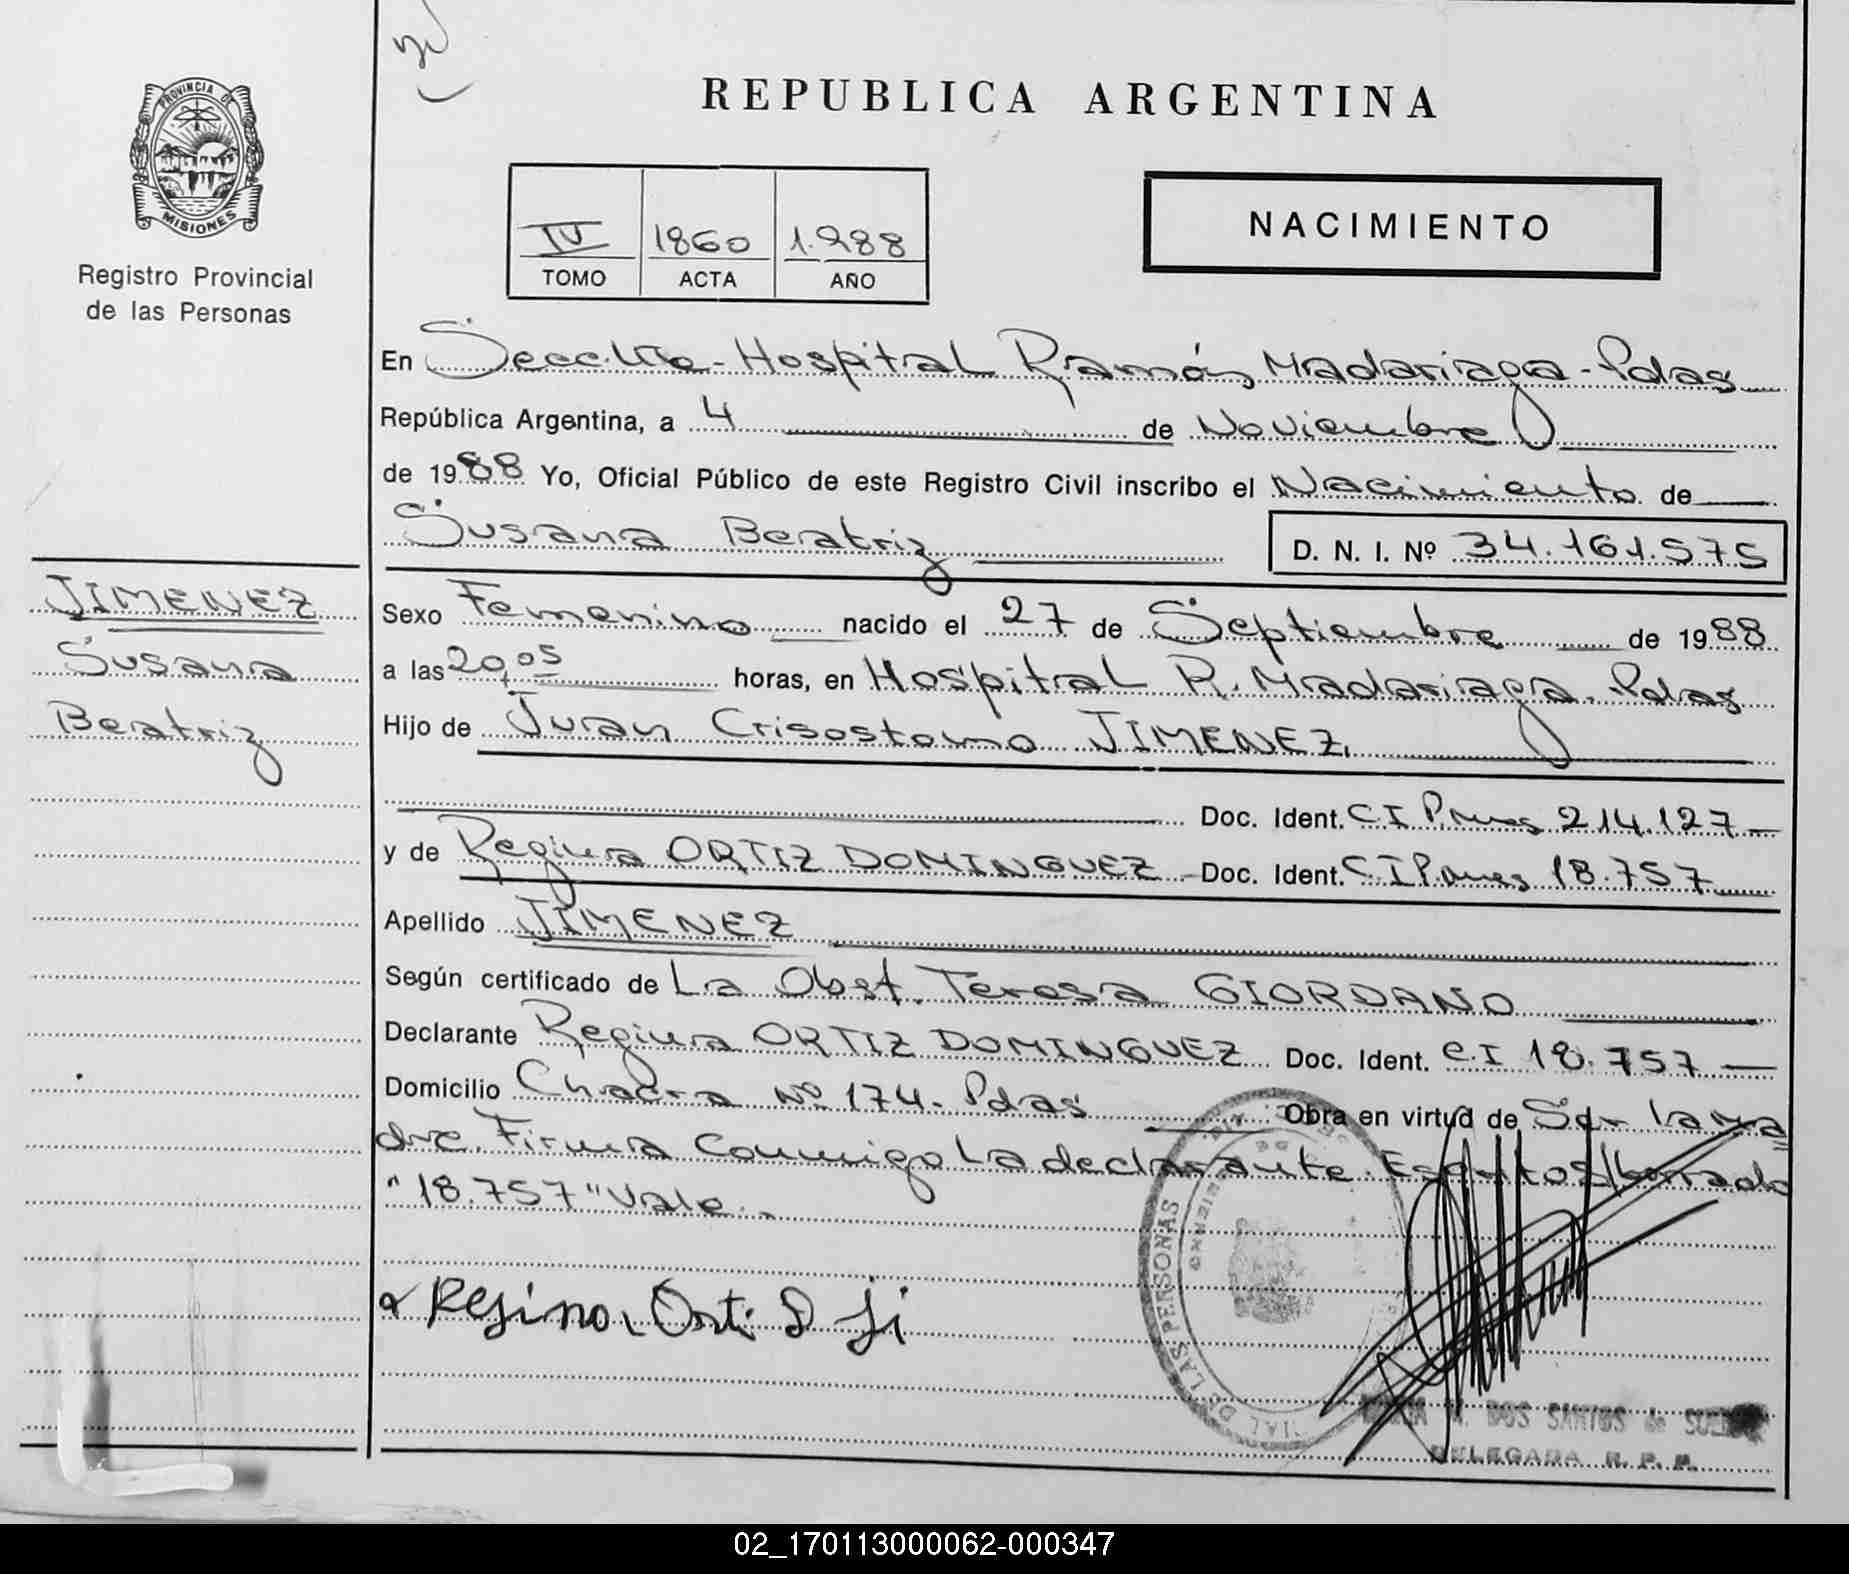 PROVINCIA DE
MISIONES
Registro Provincial
de las Personas
REPUBLICA ARGENTINA
IV 1860 1.988
TOMO ACTA AÑO
NACIMIENTO
En Secc. Hospital Ramón Madariaga - Pdas
República Argentina, a 4 de Noviembre
de 1988 Yo, Oficial Público de este Registro Civil inscribo el Nacimiento de
Susana Beatriz D. N. I. Nº 34.161.575
JIMENEZ
Susana
Beatriz
Sexo Femenino nacido el 27 de Septiembre de 1988
a las 20,05 horas, en Hospital R. Madariaga. Pdas
Hijo de Juan Crisostomo JIMENEZ.
Doc. Ident. C I P.mnes 214.127 —
y de Regina ORTIZ DOMINGUEZ - Doc. Ident. C I P.mnes 18.757
Apellido JIMENEZ
Según certificado de La Obst. Teresa GIORDANO
Declarante Regina ORTIZ DOMINGUEZ Doc. Ident. C.I 18.757 —
Domicilio Chacra Nº 174. Pdas Obra en virtud de Ser la ma
dre. Firma Conmigo La declarante. Escritos/borrado
"18.757" Vale.
Regina Orti D Ji
DE LAS PERSONAS
DOS SANTOS de
DELEGADA R. P. P.
02_170113000062-000347